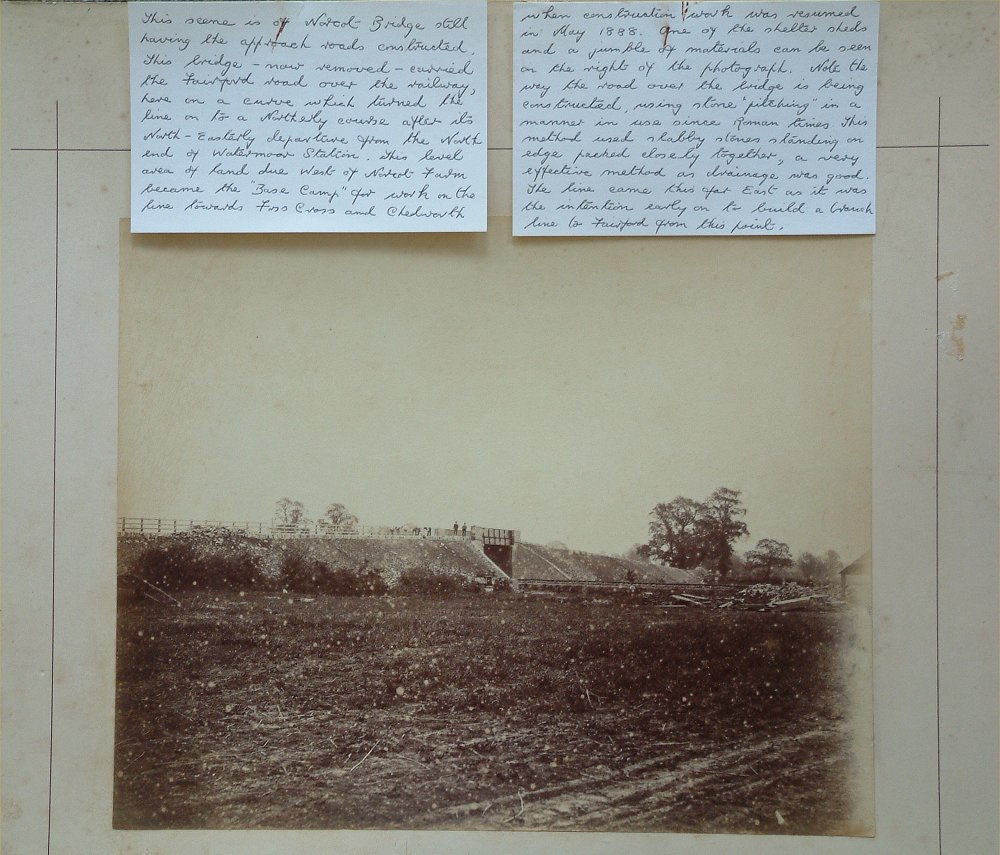 This scene is of Norcot Bridge still
having the approach roads constructed.
This bridge - now removed - carried
the Fairford road over the railway,
here on a curve which turned the
line on to a Northerly course after its
North-Easterly departure from the North
end of Watermoor Station. This level
area of land due West of Norcot Farm
became the "Base Camp" for work on the
line towards Foss Cross and Chedworth
when construction work was resumed
in May 1888. One of the shelter sheds
and a jumble of materials can be seen
on the right of the photograph. Note the
way the road over the bridge is being
constructed, using stone "pitching" in a
manner in use since Roman times. This
method used slabby stones standing on
edge packed closely together, a very
effective method as drainage was good.
The line came this far East as it was
the intention early on to build a branch
line to Fairford from this point.